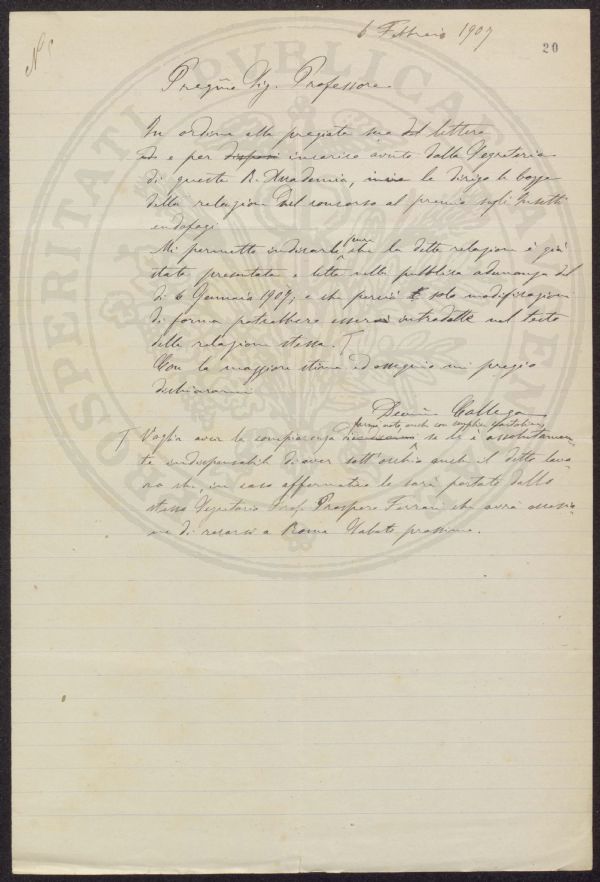 6 Febbraio 1907
20
N
Pregmo Sig. Professore
In ordine alla pregiata sua del lettera
e per incarico avuto dalla Segreteria
di questa R. Accademia, le dirigo le bozze
della relazione del concorso al premio sugli Insetti
endofagi
Mi permetto indicarle pure che la detta relazione è già
stata presentata e letta nella pubblica adunanza del
dì 6 Gennaio 1907, e che perciò solo modificazioni
di forma potrebbero essere introdotte nel testo
della relazione stessa. T
Con la maggiore stima ed ossequio mi pregio
dichiararmi
Collega
farmi noto, anche con semplice cartolina,
T Voglia aver la compiacenza se le è assolutamen-
te indispensabile di aver sott'occhio anche il detto lavo-
ro che, in caso affermativo le sarà portato dallo
stesso Segretario Prof. Prospero Ferrari che avrà occasio-
ne di recarsi a Roma Sabato prossimo.
PROSPERITATI PUBLICAE